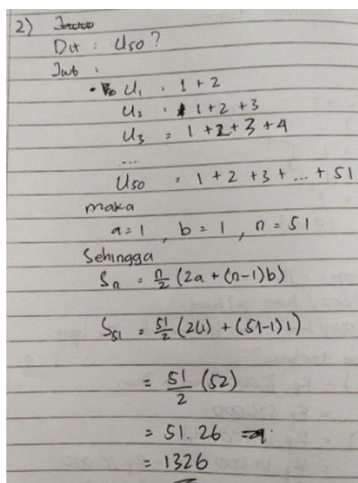 2)
Dit : U50 ?
Jwb :
• U1 = 1 + 2
U2 = 1 + 2 + 3
U3 = 1 + 2 + 3 + 4
...
U50 = 1 + 2 + 3 + ... + 51
maka
a = 1 , b = 1 , n = 51
Sehingga
Sn = n/2 (2a + (n-1)b)
S51 = 51/2 (2(1) + (51-1)1)
= 51/2 (52)
= 51.26
= 1326